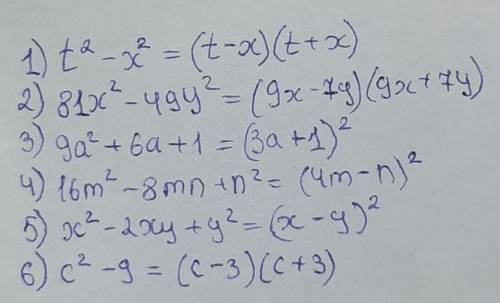 1) t² - x² = (t-x)(t+x)
2) 81x² - 49y² = (9x - 7y)(9x + 7y)
3) 9a² + 6a + 1 = (3a + 1)²
4) 16m² - 8mn + n² = (4m - n)²
5) x² - 2xy + y² = (x - y)²
6) c² - 9 = (c - 3)(c + 3)